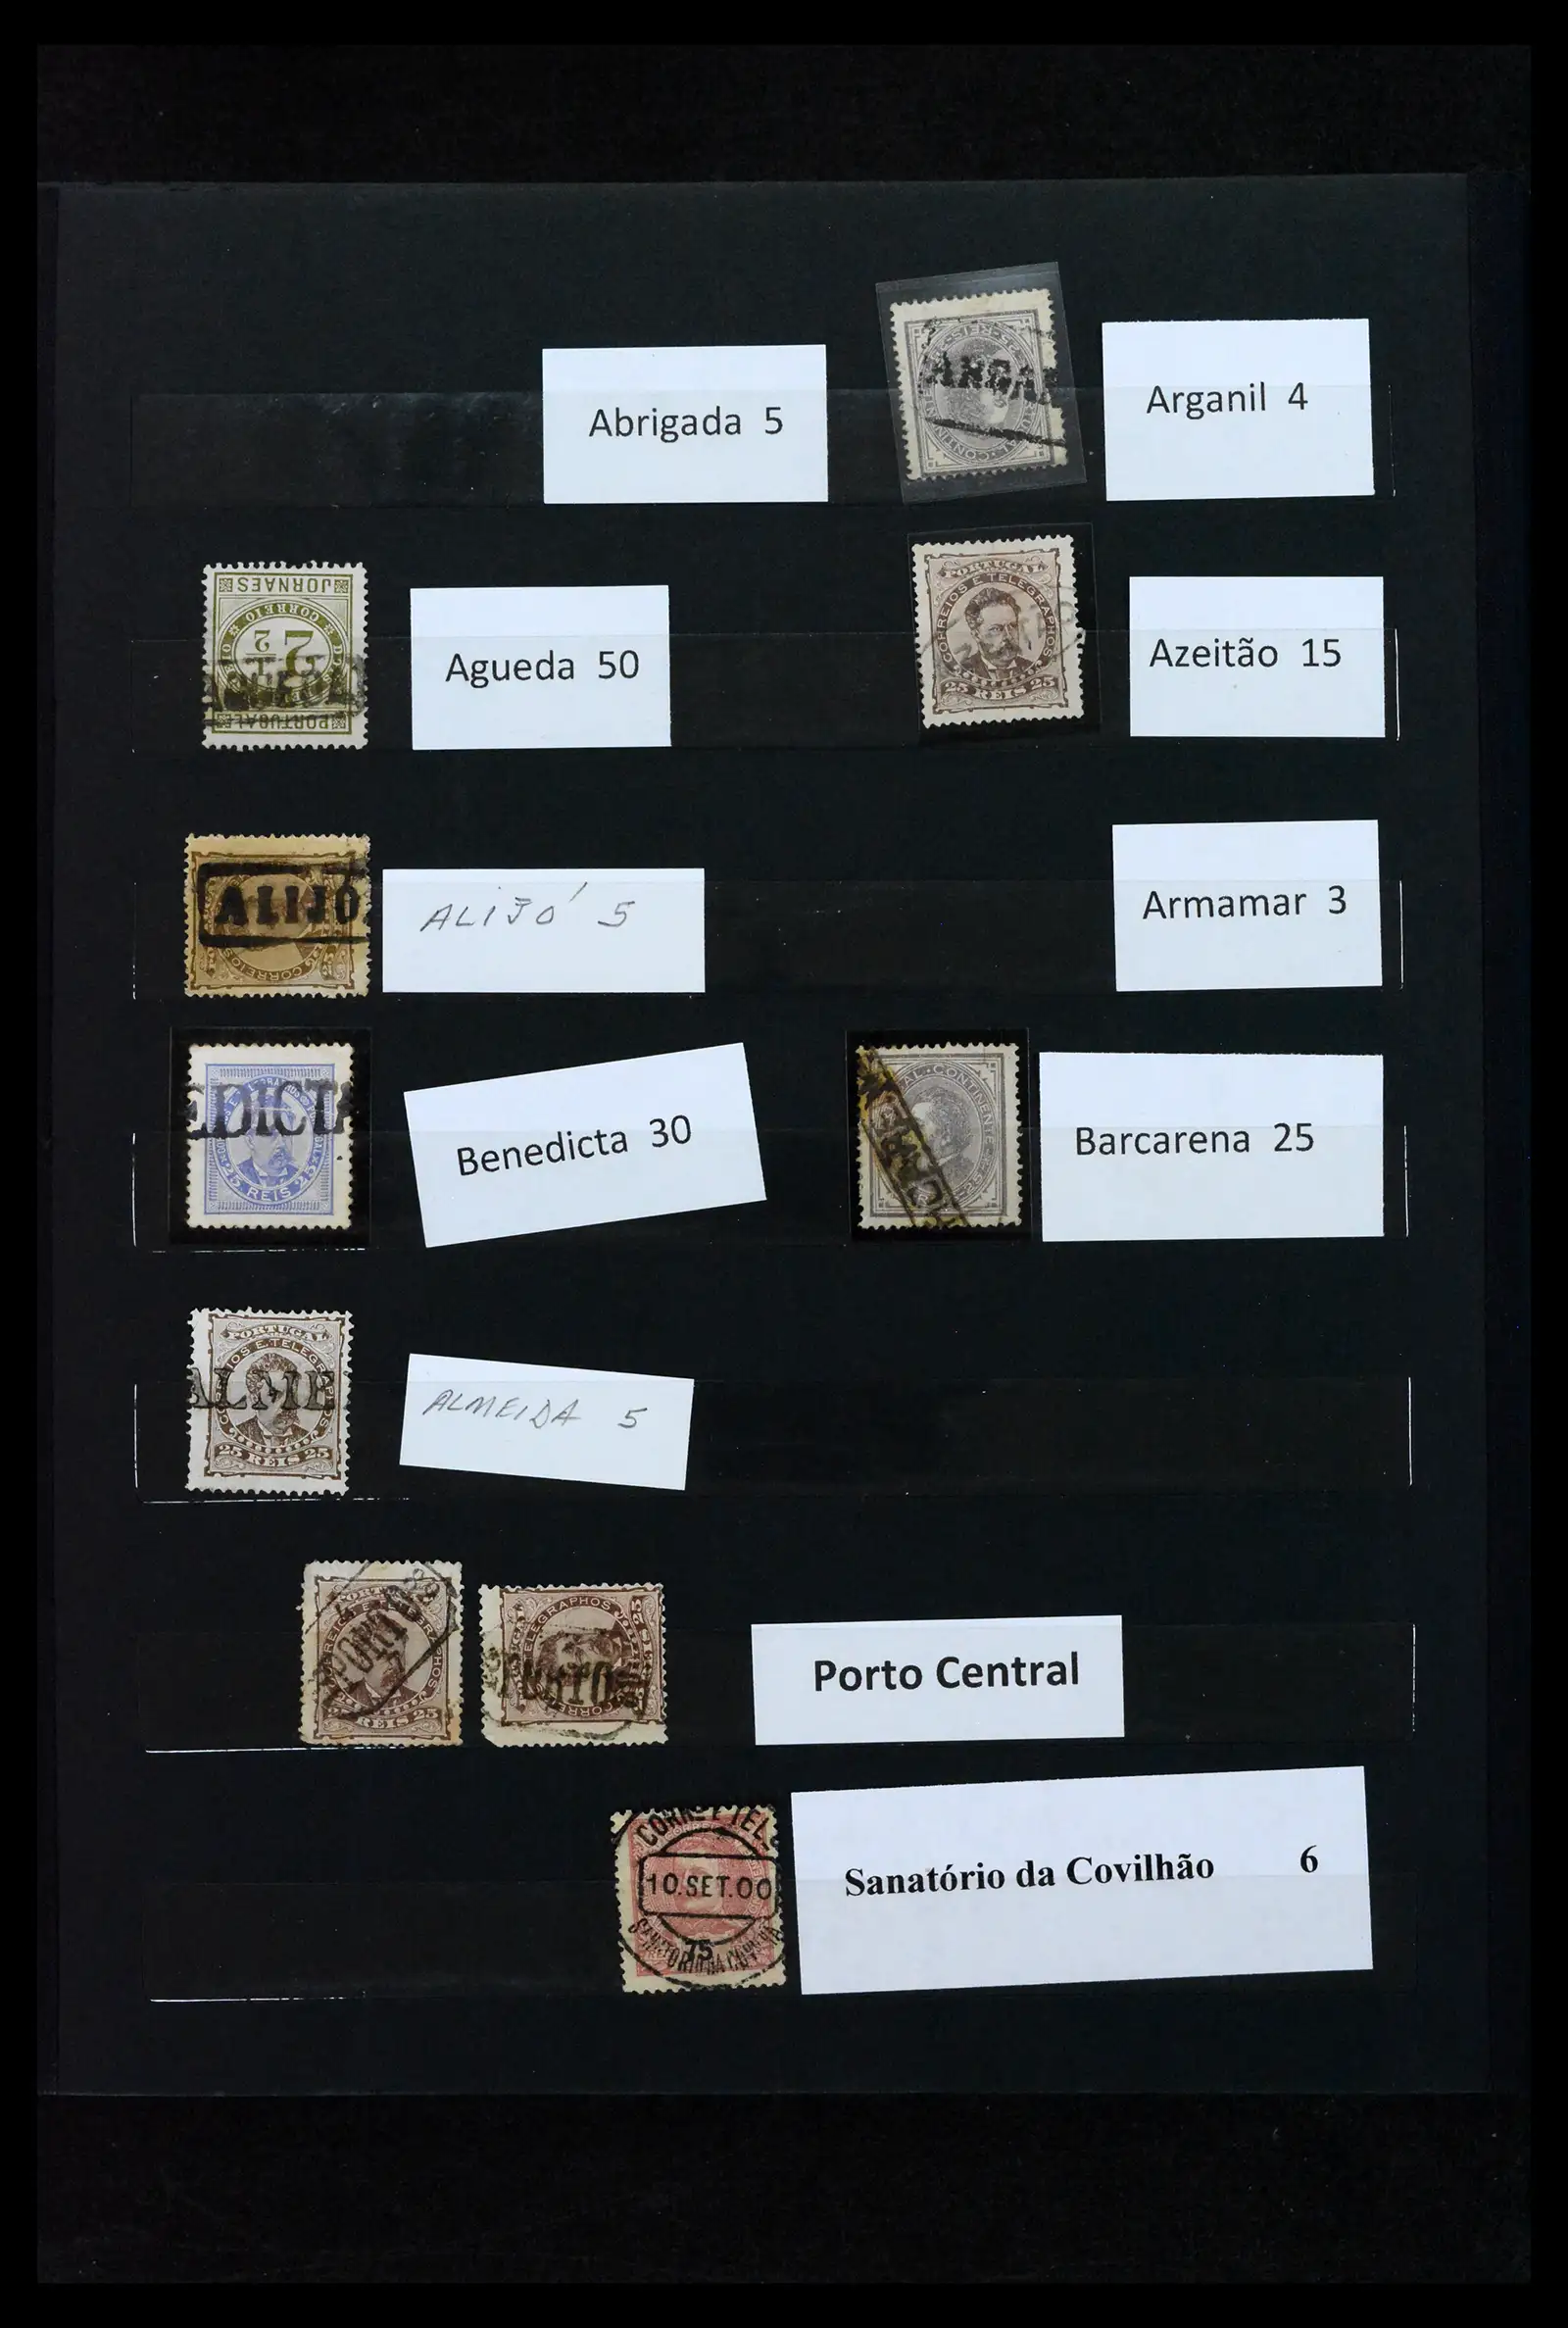 Abrigada 5
Arganil 4
JORNAES
CORREIO
2 1/2
PORTUGAL
Agueda 50
PORTUGAL
CORREIOS E TELEGRAPHOS
25 REIS 25
Azeitão 15
ALIJÓ
CORREIOS
ALIJÓ 5
Armamar 3
EDICTA
25 REIS 25
Benedicta 30
CONTINENTE
Barcarena 25
PORTUGAL
ALME
25 REIS 25
ALMEIDA 5
REIS 25
TELEGRAPHOS
Porto Central
CORRº E TEL
10.SET.00
75
Sanatório da Covilhão 6